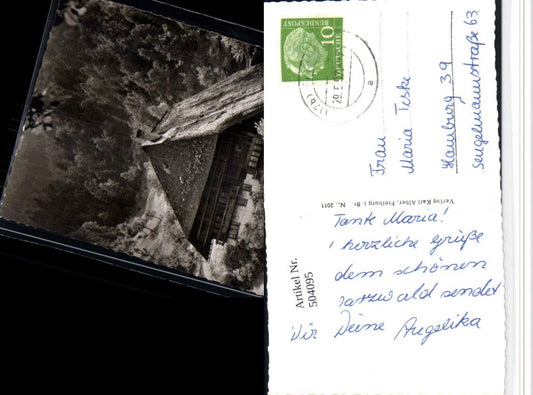 DEUTSCHE
BUNDESPOST
10
(17b)
29.
a
Frau
Maria Teske
Hamburg 39
Sengelmannstraße 63
Verlag Karl Alber, Freiburg i. Br. N. 2011
Tante Maria!
herzliche Grüße
dem schönen
arzwald sendet
Dir Deine Angelika
Artikel Nr.
504095